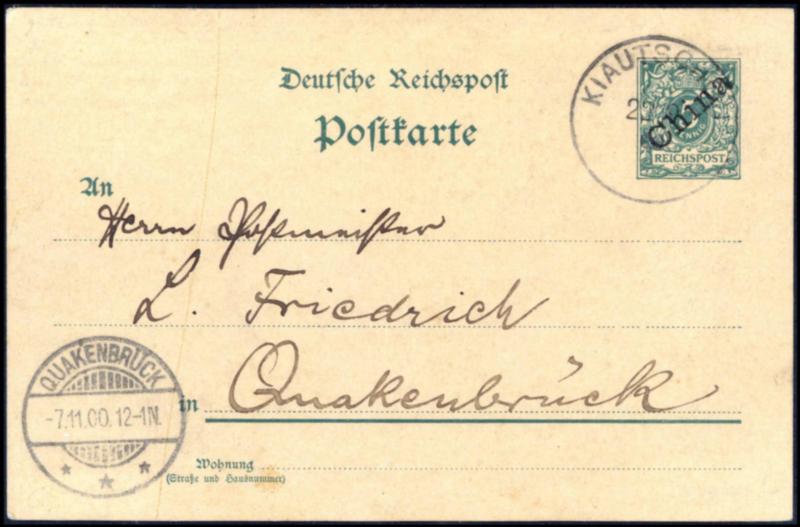 Deutsche Reichspost
Postkarte
KIAUTSCH
China
PFENNIG
REICHSPOST
An
Herrn Postmeister
L. Friedrich
in Quakenbrück
QUAKENBRÜCK
-7.11.00.12-1N.
Wohnung
(Straße und Hausnummer)